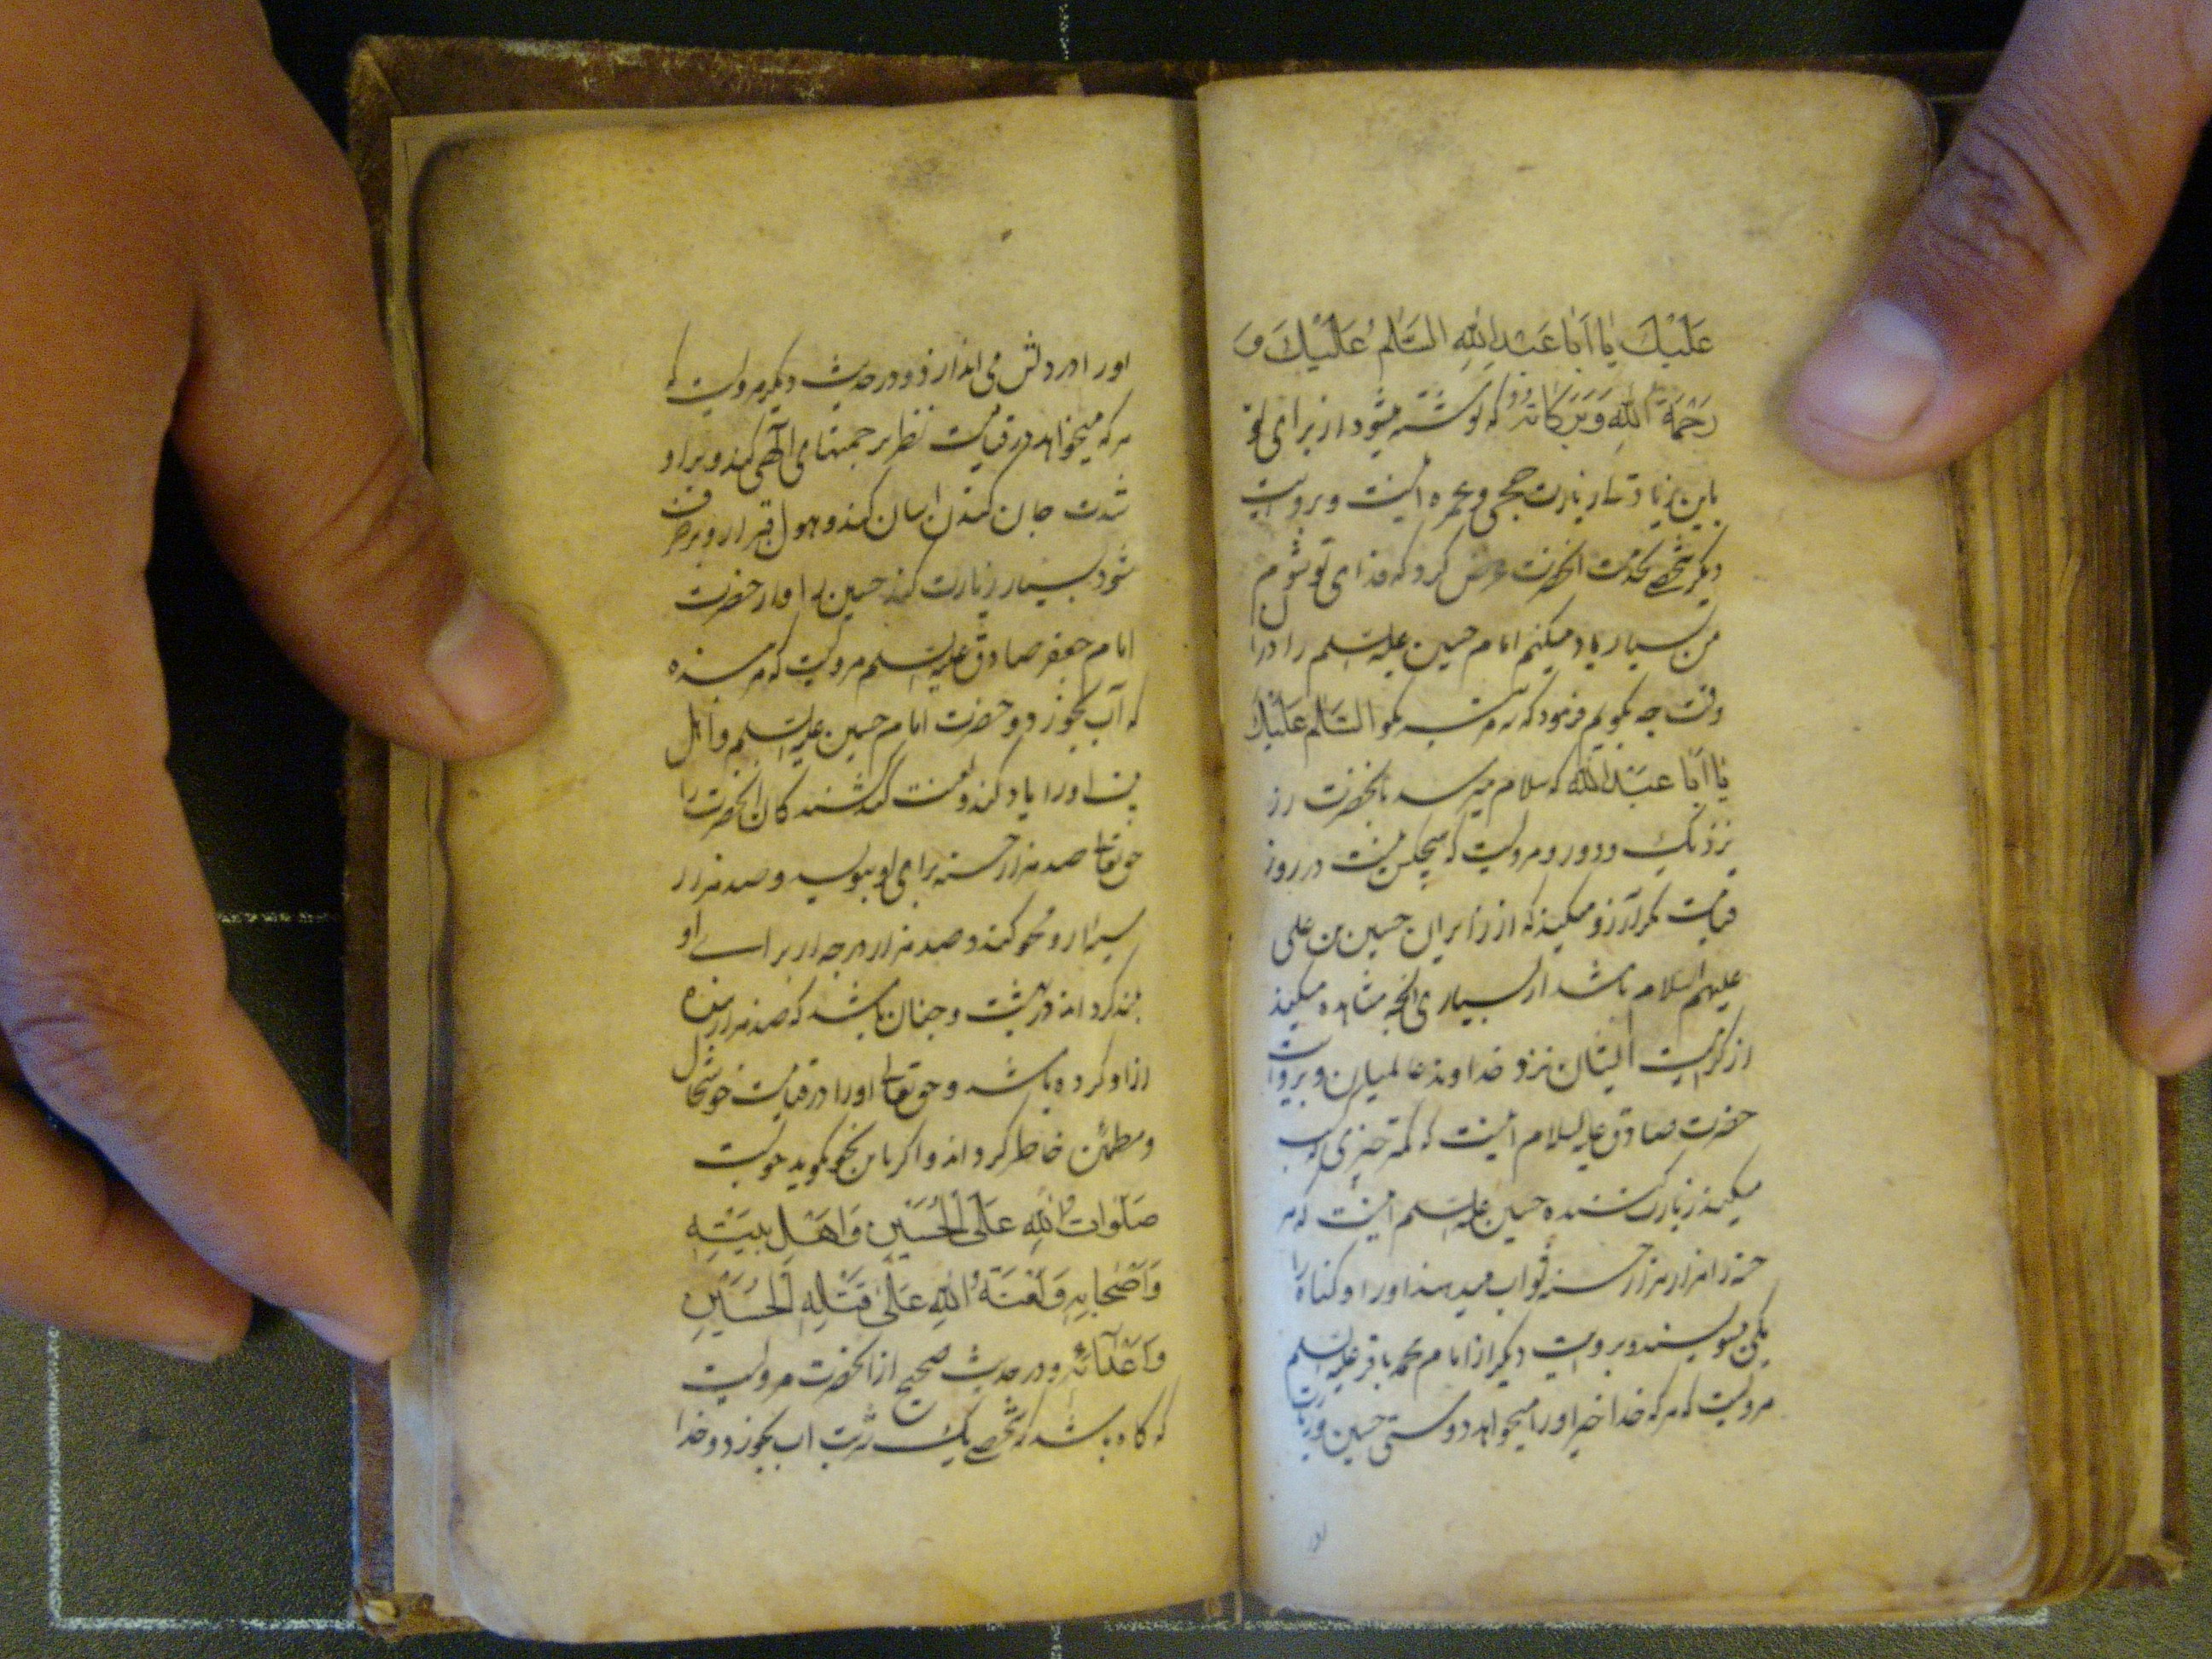 عَلَيْكَ يَا اَبَا عَبْدِ اللهِ السَّلَامُ عَلَيْكَ وَ
رَحْمَةُ اللهِ وَبَرَكَاتُهُ که نوشته میشود از برای تو
باین زیارت حجی و عمره اینست و بروایت
دیکر شخصی بخدمت انحضرت عرض کرد که فدای تو شوم
من بسیار یاد میکنم امام حسین علیه السلم را درا
وقت چه بکویم فرمود که سه مرتبه بکو السَّلَامُ عَلَيْكَ
يَا اَبَا عَبْدِ اللهِ که سلام میرسد بانحضرت از
نزدیک و دور و مرویست که هیچکس نیست در روز
قیامت مکر ارزو میکند که از زایران حسین بن علی
علیهم السلام باشد از بسیاری انچه مشاهده میکند
از کرامت ایشان نزد خداوند عالمیان و بروایت
حضرت صادق علیه السلام اینست که کمتر چیزی که کسب
میکند زیارت کننده حسین علیه السلم اینست که هر
حسنه را هزار هزار حسنه ثواب میدهند او را و کناه را
یکی مینویسند و بروایت دیکر از امام محمد باقر علیه السلم
مرویست که هر که خدا خیر او را میخواهد دوستی حسین و زیارت
او
او را در دلش می اندازد و در حدیث دیکر مرویست که
هر که میخواهد در قیامت نظر برحمتهای الهی کند و بر او
شدت جان کندن اسان کند و هول قبر از و برطرف
شود بسیار زیارت کند حسین را و از حضرت
امام جعفر صادق علیه السلم مرویست که هر بنده
که آب بخورد و حضرت امام حسین علیه السلم و اهل
بیت او را یاد کند و لعنت کند کشندکان انحضرت را
حق تعالی صد هزار حسنه برای او بنویسد و صد هزار
سیئه از و محو کند و صد هزار درجه از برای او
بلند کرداند در بهشت و چنان باشد که صد هزار بنده
ازاد کرده باشد و حق تعالی او را در قیامت خوشحال
و مطمئن خاطر کرداند و اکر باین نحو بکوید خوبست
صَلَوَاتُ اللهِ عَلَى الْحُسَيْنِ وَاَهْلِ بَيْتِهِ
وَاَصْحَابِهِ وَلَعْنَةُ اللهِ عَلَى قَتَلَةِ الْحُسَيْنِ
وَاَعْدَائِهِ و در حدیث صحیح از انحضرت مرویست
که کاه باشد که شخصی یک شربت اب بخورد و خدا